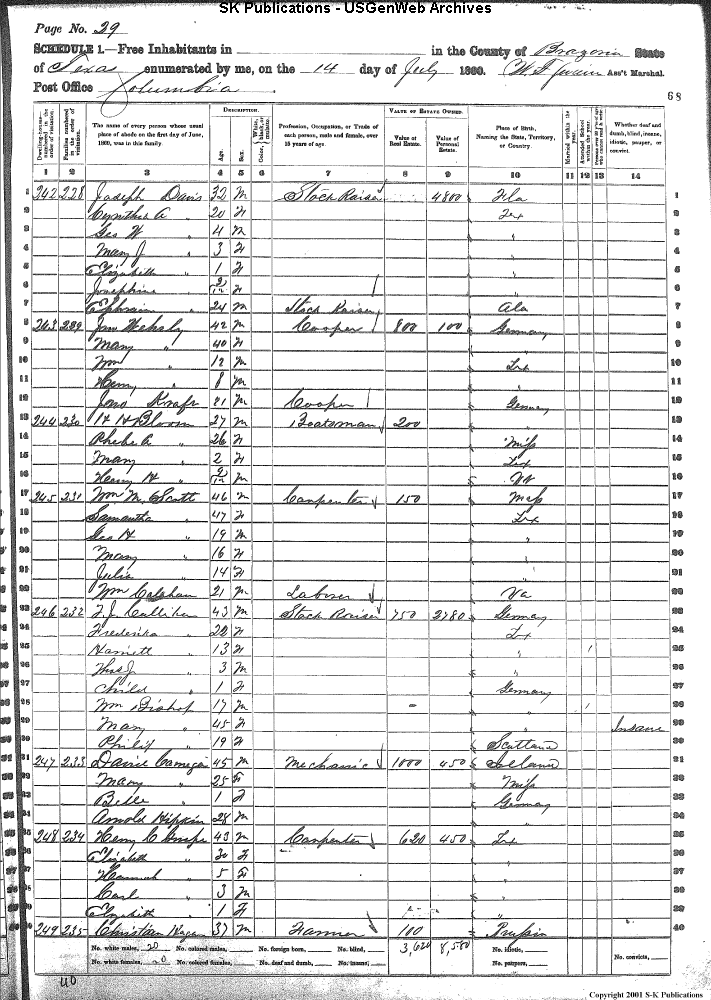 SK Publications - USGenWeb Archives
Page No. 29
SCHEDULE 1.—Free Inhabitants in in the County of Brazoria State
of Texas enumerated by me, on the 14 day of July 1860. Ass't Marshal.
Post Office Columbia
68
Dwelling-house— numbered in the order of visitation.
Families numbered in the order of visitation.
The name of every person whose usual place of abode on the first day of June, 1860, was in this family.
DESCRIPTION.
Age.
Sex.
Color, White, black, or mulatto.
Profession, Occupation, or Trade of each person, male and female, over 15 years of age.
VALUE OF ESTATE OWNED.
Value of Real Estate.
Value of Personal Estate.
Place of Birth, Naming the State, Territory, or Country.
Married within the year.
Attended School within the year.
Whether deaf and dumb, blind, insane, idiotic, pauper, or convict.
1 2 3 4 5 6 7 8 9 10 11 12 13 14
1 242 228 Joseph Davis 32 M Stock Raiser 4800 Fla 1
2 Cynthia A " 20 F Tex 2
3 Geo W " 4 M " 3
4 Mary J " 3 F " 4
5 Elizabeth " 1 F " 5
6 Josephine " 2/12 F " 6
7 Ephraim " 24 M Stock Raiser Ala 7
8 243 229 Jas 42 M Cooper 800 100 Germany 8
9 Mary " 40 F " 9
10 Wm " 12 M Tex 10
11 Henry " 8 M " 11
12 21 M Cooper Germany 12
13 244 230 H H Bloom 27 M Boatsman 200 " 13
14 Phebe A " 26 F Miss 14
15 Mary " 2 F Tex 15
16 Henry H " 2/12 M 16
17 245 231 Wm M Scott 46 M Carpenter 150 Mass 17
18 Samantha " 47 F Tex 18
19 Geo H " 19 M " 19
20 Mary " 16 F " 20
21 Julia " 14 F " 21
22 Wm Calahan 21 M Laborer Va 22
23 246 232 F. J. Callihan 43 M Stock Raiser 750 2780 Germany 23
24 Frederika " 22 F Tex 24
25 Harriett " 13 F " 25
26 Thos J. " 3 M " 26
27 Child " 1 F Germany 27
28 Wm Bishop 17 M " 28
29 Mary " 45 F " Insane 29
30 Philip " 19 F Scotland 30
31 247 233 45 M Mechanic 1000 450 Ireland 31
32 Mary " 25 F Miss 32
33 Belle " 1 F Germany 33
34 Arnold Hipkin 28 M " 34
35 248 234 Henry C 43 M Carpenter 620 450 Tex 35
36 Elizabeth " 30 F " 36
37 Hannah " 5 F " 37
38 Carl " 3 M " 38
39 Elizabeth " 1 F " 39
40 249 235 Christian 37 M Farmer 100 Prussia 40
No. white males, 20 No. colored males, No. foreign born, No. blind, 3,620 8,580 No. idiotic,
No. white females, 20 No. colored females, No. deaf and dumb, No. insane, No. paupers, No. convicts,
40
Copyright 2001 S-K Publications